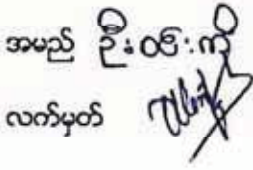 အမည် ဦးဝင်းကို
လက်မှတ်